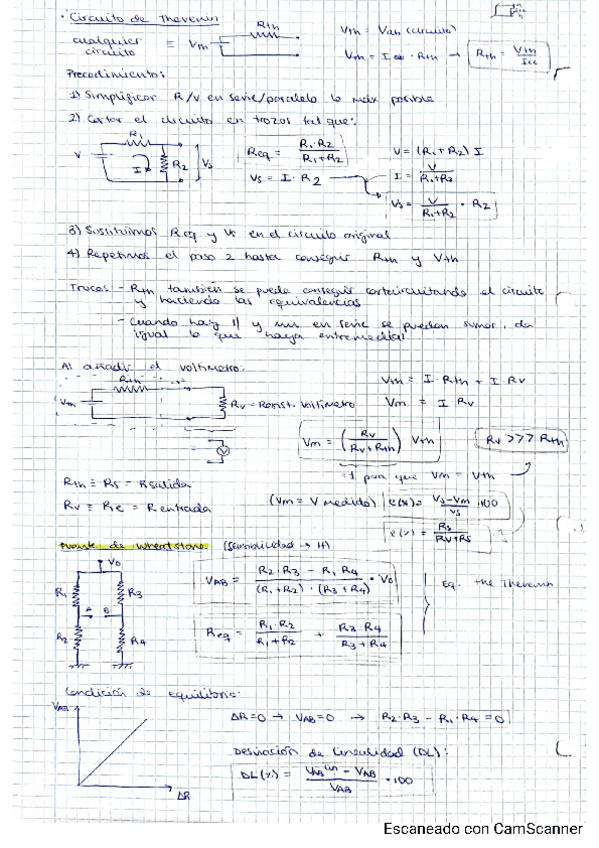 · Circuito de Thevenin
cualquier circuito ≡ Vth Rth
Vth = Vab (circuito)
Vth = Icc · Rth → Rth = Vth / Icc
Procedimiento:
1) Simplificar R/V en serie/paralelo lo más posible
2) Cortar el circuito en trozos tal que:
V R1 I R2 Vs
Req = R1·R2 / (R1+R2)
Vs = I · R2
V = (R1+R2) I
I = V / (R1+R2)
Vs = V / (R1+R2) · R2
3) Sustituimos Req y Vs en el circuito original
4) Repetimos el paso 2 hasta conseguir Rth y Vth
Trucos: - Rth también se puede conseguir cortocircuitando el circuito
y haciendo las equivalencias
- Cuando hay // y en serie se pueden sumar, da
igual lo que haya entremedias
Al añadir el voltímetro:
Vth Rth
Rv = Resist. voltímetro
V
Vth = I · Rth + I Rv
Vm = I Rv
Vm = (Rv / (Rv+Rth)) Vth
Rv >>> Rth
≈1 para que Vm = Vth
Rth ≡ Rs = Rsalida
Rv ≡ Re = Rentrada
(Vm = V medido)
e(%) = (Vs-Vm) / Vs · 100
e(%) = Rs / (Rv+Rs)
Puente de Wheatstone: (Sensibilidad → H)
V0 R1 R3 A B R2 R4
VAB = (R2·R3 - R1·R4) / ((R1+R2)·(R3+R4)) · V0
Req = R1·R2 / (R1+R2) + R3·R4 / (R3+R4)
Eq. the Thevenin
Condición de equilibrio:
VAB
ΔR
ΔR=0 → VAB=0 → R2·R3 - R1·R4 = 0
Desviación de Linealidad (DL):
DL(%) = (VAB lin - VAB) / VAB · 100
Escaneado con CamScanner